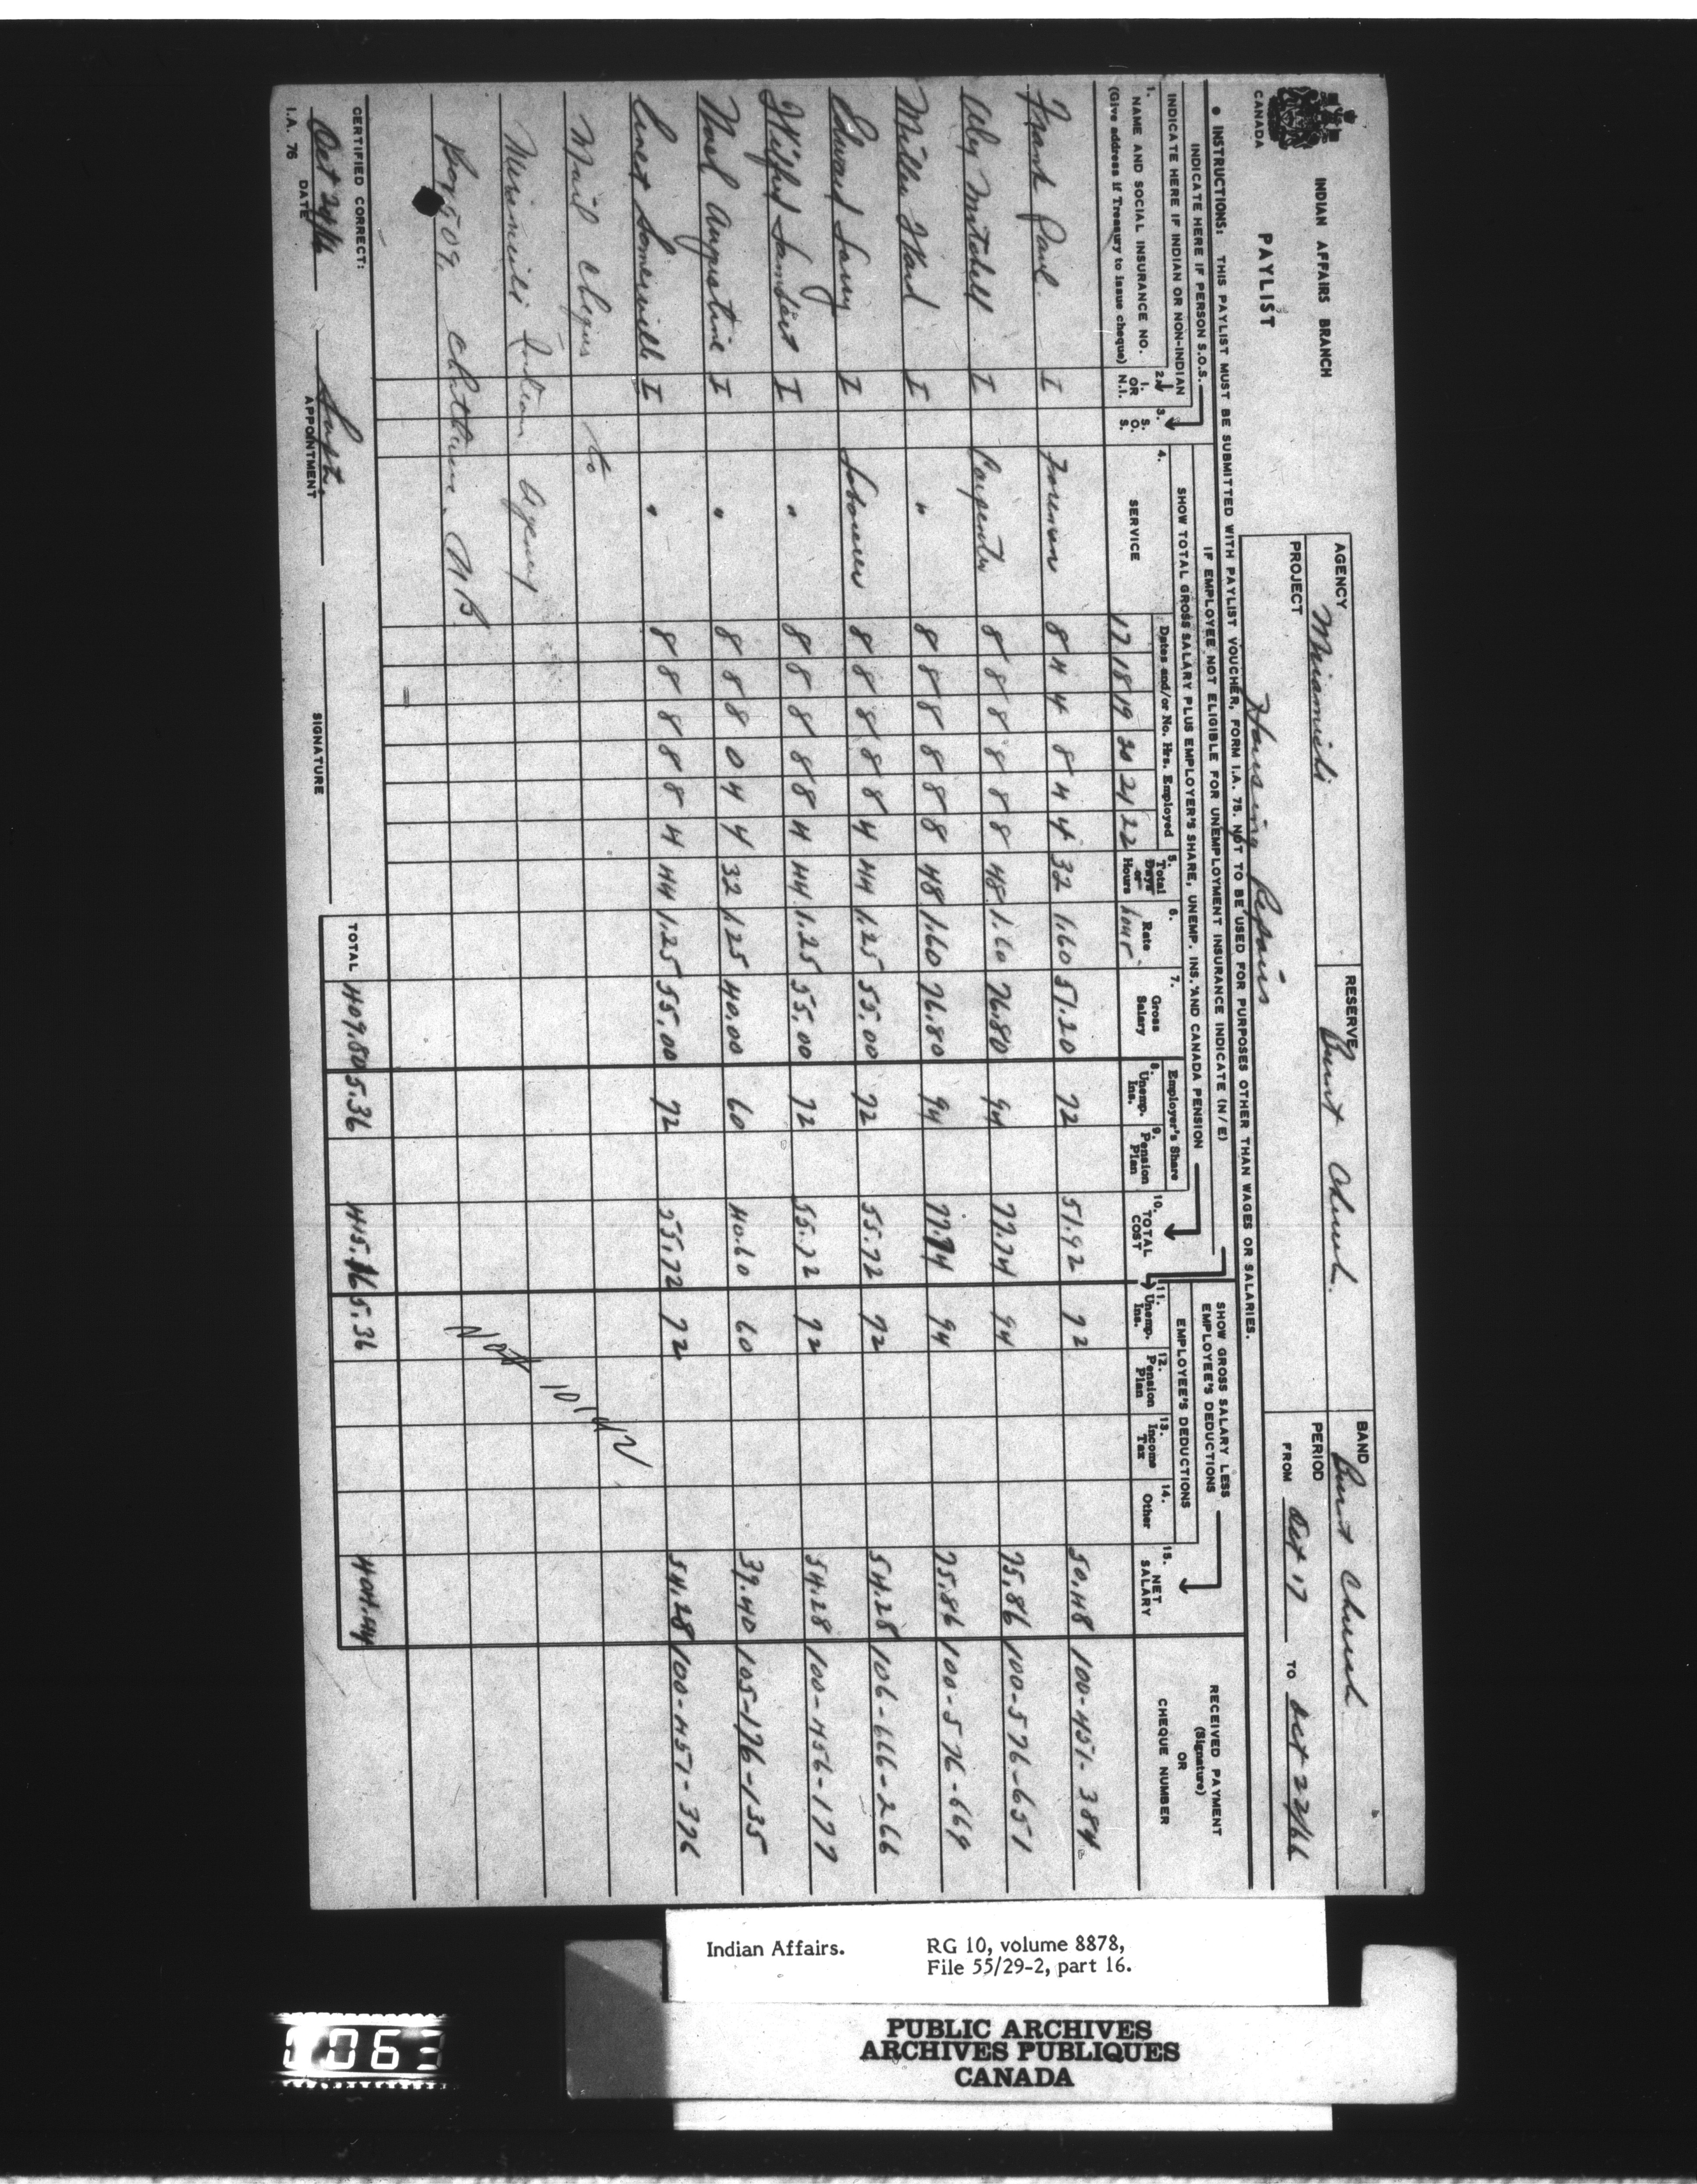 INDIAN AFFAIRS BRANCH
CANADA
PAYLIST
AGENCY Miramichi
RESERVE Burnt Church.
BAND Burnt Church
PROJECT Housing Repairs
PERIOD FROM Oct 17 TO Oct 22/66
• INSTRUCTIONS: THIS PAYLIST MUST BE SUBMITTED WITH PAYLIST VOUCHER, FORM I.A. 75. NOT TO BE USED FOR PURPOSES OTHER THAN WAGES OR SALARIES.
INDICATE HERE IF PERSON S.O.S.
IF EMPLOYEE NOT ELIGIBLE FOR UNEMPLOYMENT INSURANCE INDICATE (N/E)
INDICATE HERE IF INDIAN OR NON-INDIAN
SHOW TOTAL GROSS SALARY PLUS EMPLOYER'S SHARE, UNEMP. INS. AND CANADA PENSION
SHOW GROSS SALARY LESS EMPLOYEE'S DEDUCTIONS
RECEIVED PAYMENT (Signature) OR CHEQUE NUMBER
1. NAME AND SOCIAL INSURANCE NO. (Give address if Treasury to issue cheque)
2. I. OR N.I.
3. S. O. S.
4. SERVICE
Dates and/or No. Hrs. Employed
17 18 19 20 21 22
5. Total Days or Hours
6. Rate hour
7. Gross Salary
Employer's Share
8. Unemp. Ins.
9. Pension Plan
10. TOTAL COST
EMPLOYEE'S DEDUCTIONS
11. Unemp. Ins.
12. Pension Plan
13. Income Tax
14. Other
15. NET SALARY
Frank Paul. I Foreman 8 4 4 8 4 4 32 1.60 51.20 72 51.92 72 50.48 100-451-384
Mitchell I Carpenter 8 8 8 8 8 8 48 1.60 76.80 94 77.74 94 75.86 100-576-651
I " 8 8 8 8 8 8 48 1.60 76.80 94 77.74 94 75.86 100-576-669
Edward I Labourer 8 8 8 8 8 4 44 1.25 55.00 72 55.72 72 54.28 106-666-266
Wilfred I " 8 8 8 8 8 4 44 1.25 55.00 72 55.72 72 54.28 100-456-177
Noel Augustine I " 8 8 8 0 4 4 32 1.25 40.00 60 40.60 60 39.40 105-176-135
I " 8 8 8 8 8 4 44 1.25 55.00 72 55.72 72 54.28 100-451-376
Mail cheques to
Miramichi Indian Agency
Box 509, Chatham, N.B.
TOTAL 409.80 5.36 415.16 5.36 404.44
CERTIFIED CORRECT:
Oct 24/66 Supt.
DATE APPOINTMENT SIGNATURE
I.A. 76
Indian Affairs. RG 10, volume 8878,
File 55/29-2, part 16.
PUBLIC ARCHIVES
ARCHIVES PUBLIQUES
CANADA